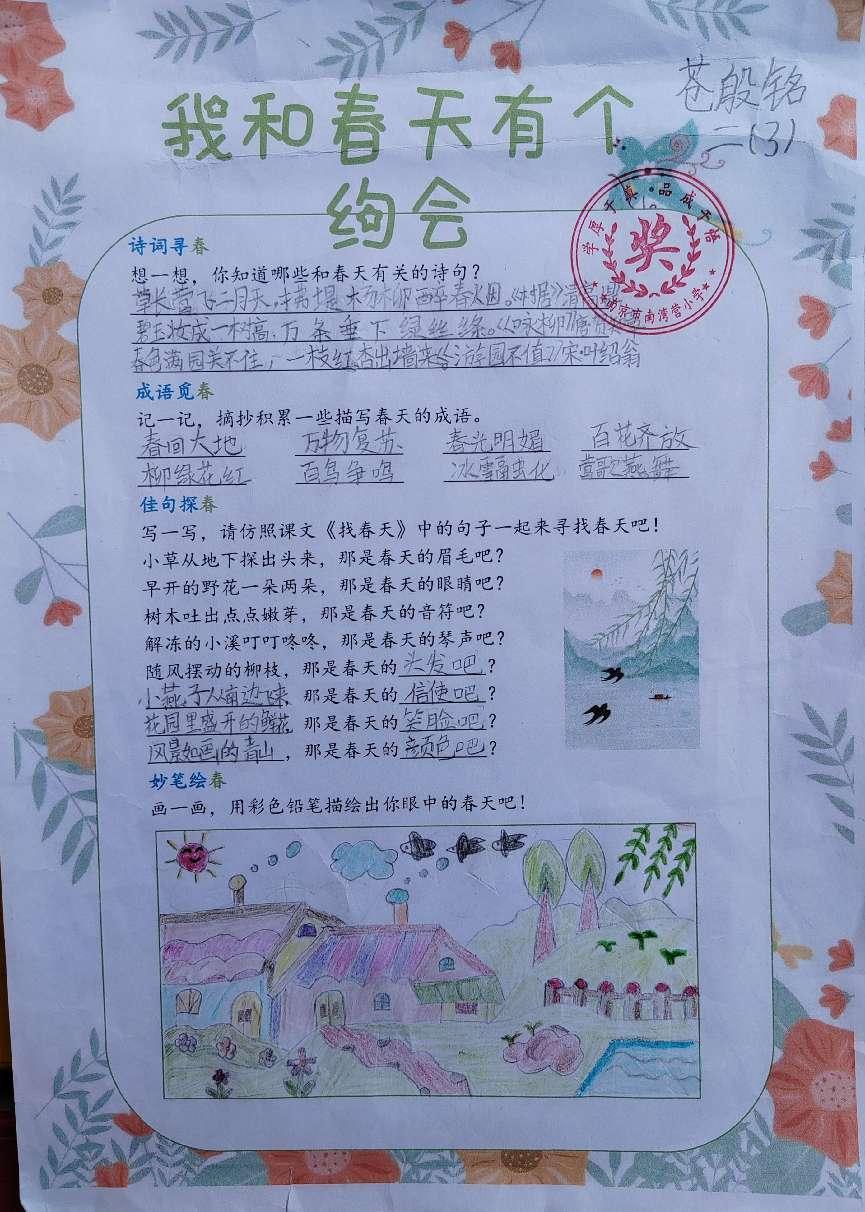 苍殷铭
二(3)
我和春天有个
绚会
学厚于真·品成于格
奖
南湾营小学
诗词寻春
想一想，你知道哪些和春天有关的诗句？
草长莺飞二月天，拂堤杨柳醉春烟。《村居》清高鼎
碧玉妆成一树高，万条垂下绿丝绦。《咏柳》唐贺知章
春色满园关不住，一枝红杏出墙来《游园不值》宋叶绍翁
成语觅春
记一记，摘抄积累一些描写春天的成语。
春回大地 万物复苏 春光明媚 百花齐放
柳绿花红 百鸟争鸣 冰雪融化 莺歌燕舞
佳句探春
写一写，请仿照课文《找春天》中的句子一起来寻找春天吧！
小草从地下探出头来，那是春天的眉毛吧？
早开的野花一朵两朵，那是春天的眼睛吧？
树木吐出点点嫩芽，那是春天的音符吧？
解冻的小溪叮叮咚咚，那是春天的琴声吧？
随风摆动的柳枝，那是春天的头发吧？
小燕子从南边飞来，那是春天的信使吧？
花园里盛开的鲜花，那是春天的笑脸吧？
风景如画的青山，那是春天的颜色吧？
妙笔绘春
画一画，用彩色铅笔描绘出你眼中的春天吧！